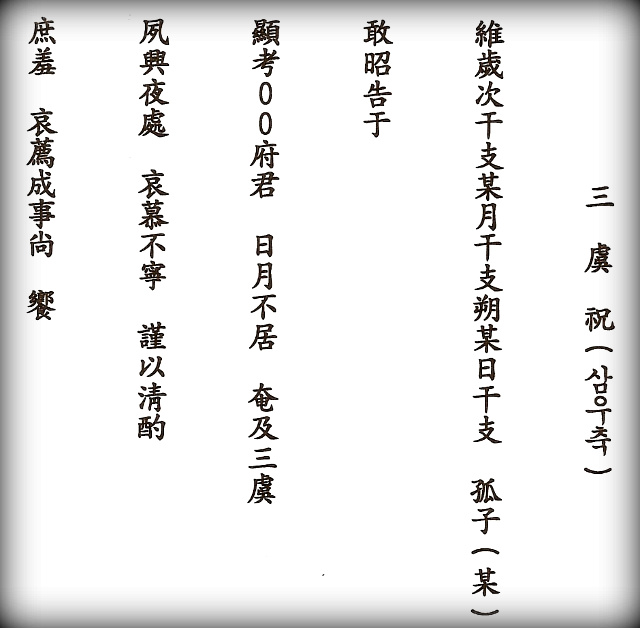 三 虞 祝(삼우축)
維歲次干支某月干支朔某日干支 孤子(某)
敢昭告于
顯考00府君 日月不居 奄及三虞
夙興夜處 哀慕不寧 謹以淸酌
庶羞 哀薦成事尙 饗